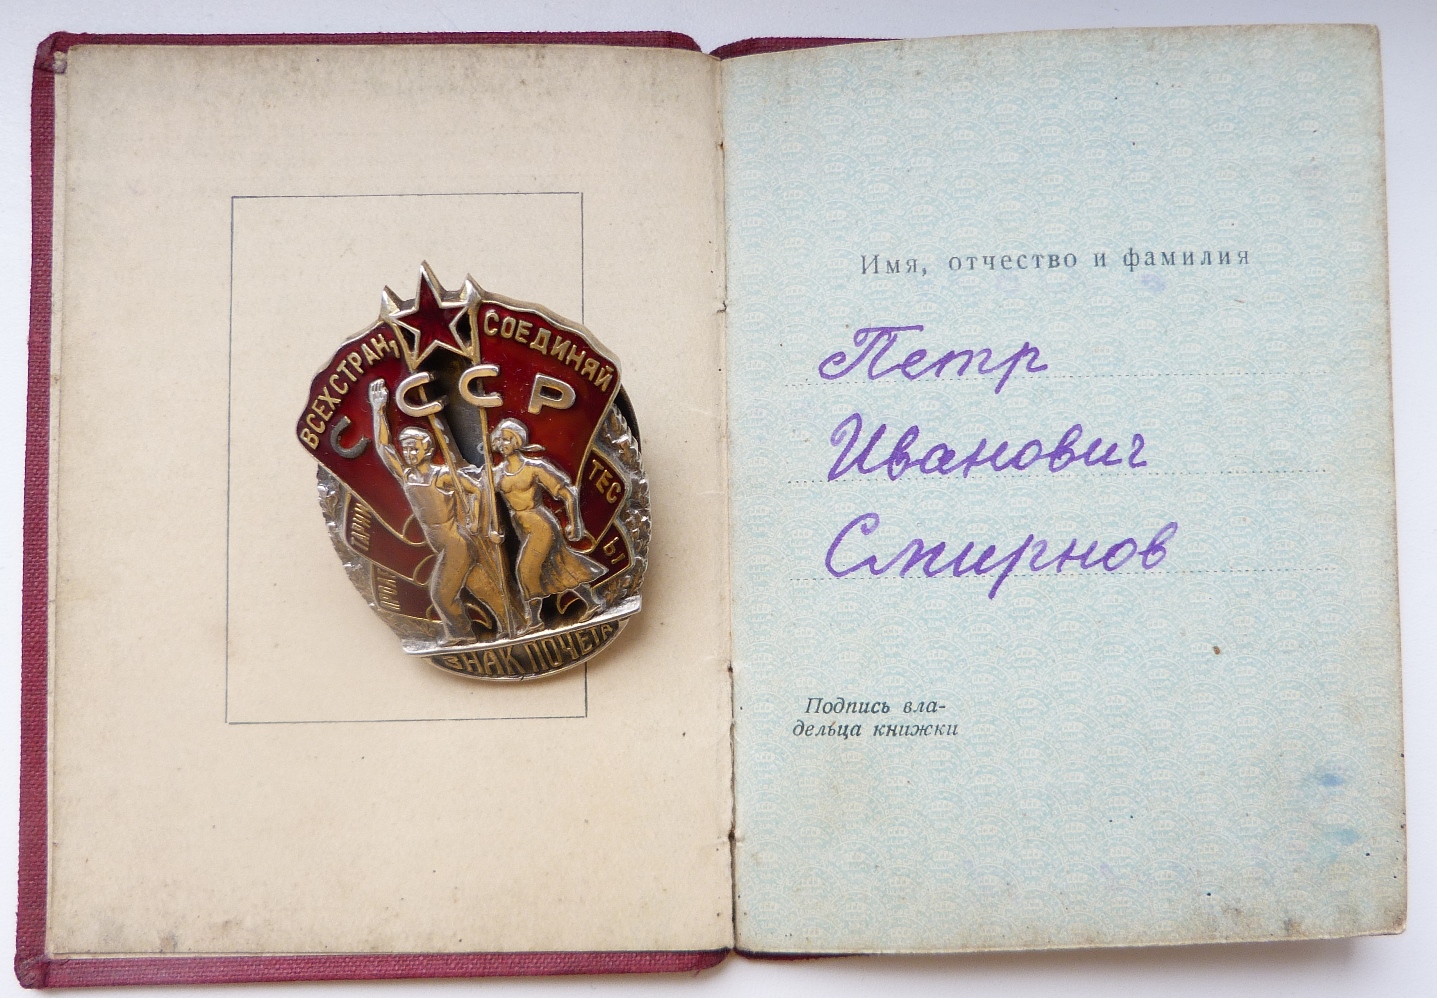 ПРОЛЕТАРИИ
ВСЕХ СТРАН,
СОЕДИНЯЙ
ТЕСЬ
СССР
ЗНАК ПОЧЕТА
Имя, отчество и фамилия
Петр
Иванович
Смирнов
Подпись вла-
дельца книжки